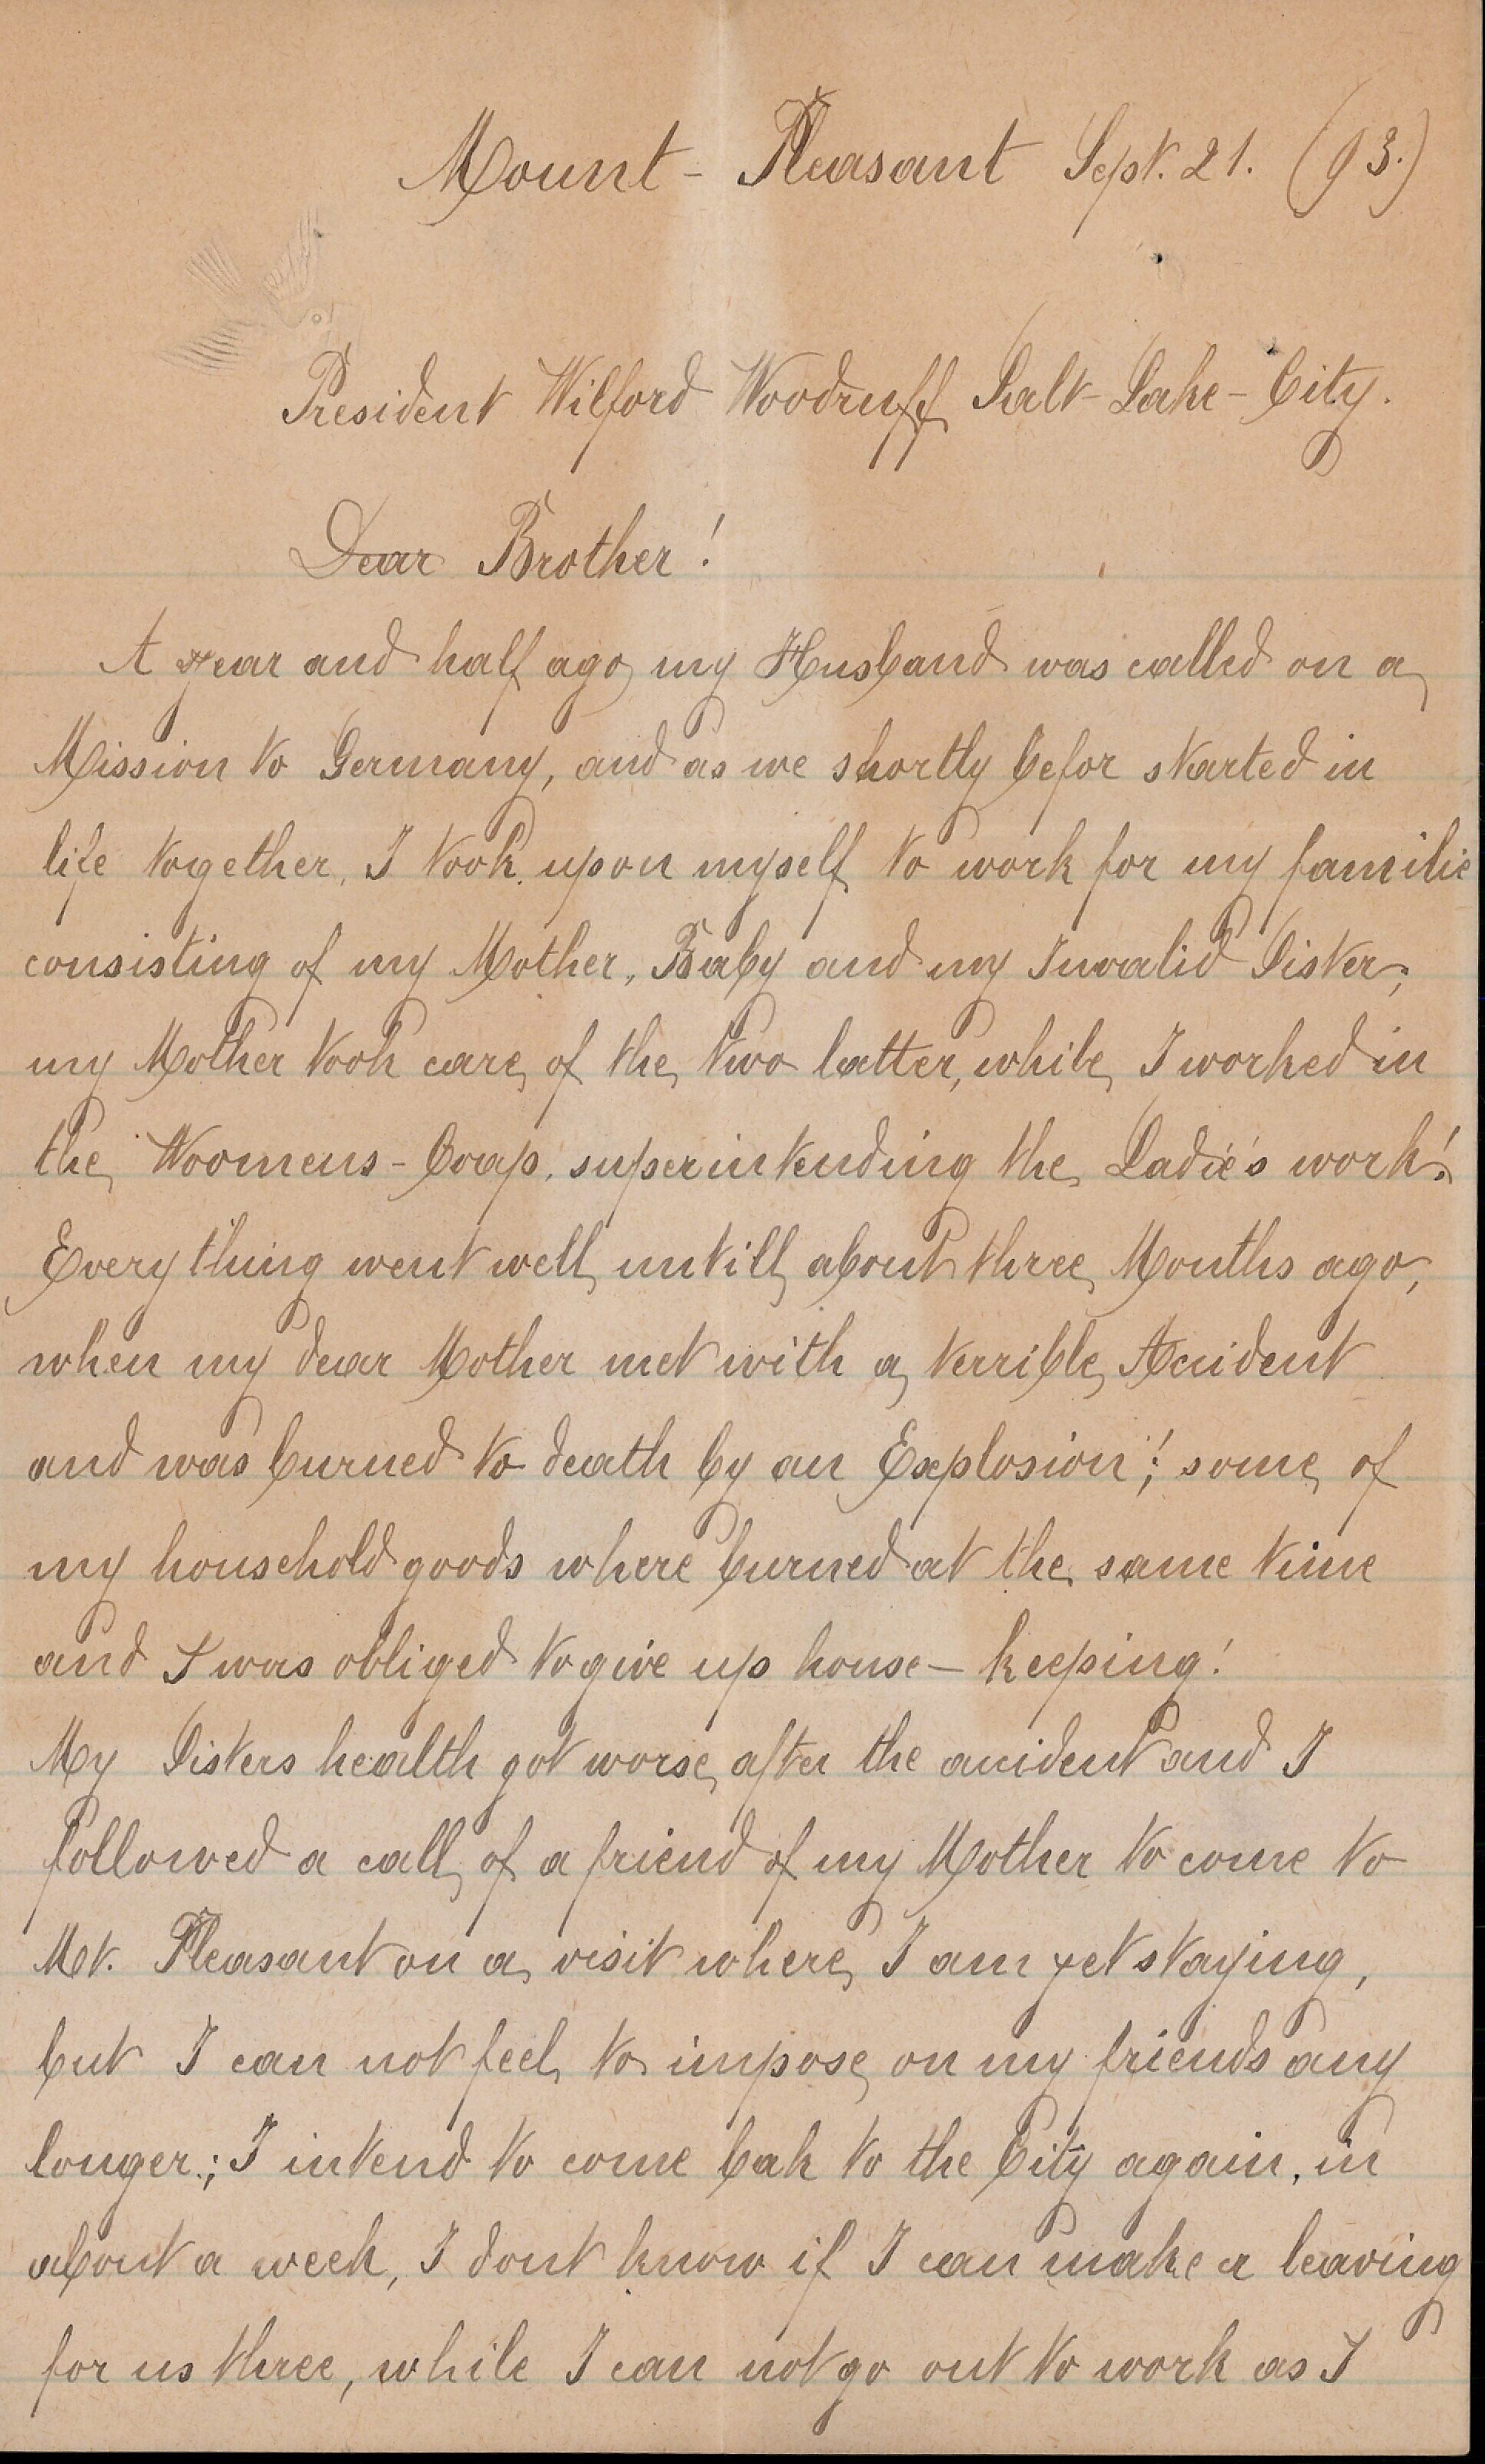 Mount - Pleasant Sept. 21. (93.)
President Wilford Woodruff Salt-Lake-City.
Dear Brother!
A year and half ago my Husband was called on a
Mission to Germany, and as we shortly befor started in
life together, I took upon myself to work for my familie
consisting of my Mother, Baby and my Invalid Sister;
my Mother took care of the two latter, while I worked in
the Woomens-Coop. superintending the Ladie's work!
Everything went well untill about three Months ago,
when my dear Mother met with a terrible Accident
and was burned to death by an Explosion!; some of
my household goods where burned at the same time
and I was obliged to give up house-keeping!
My Sisters health got worse after the accident and I
followed a call of a friend of my Mother to come to
Mt. Pleasant on a visit where I am yet staying,
but I can not feel to impose on my friends any
longer; I intend to come bak to the City again, in
about a week, I dont know if I can make a leaving
for us three, while I can not go out to work as I